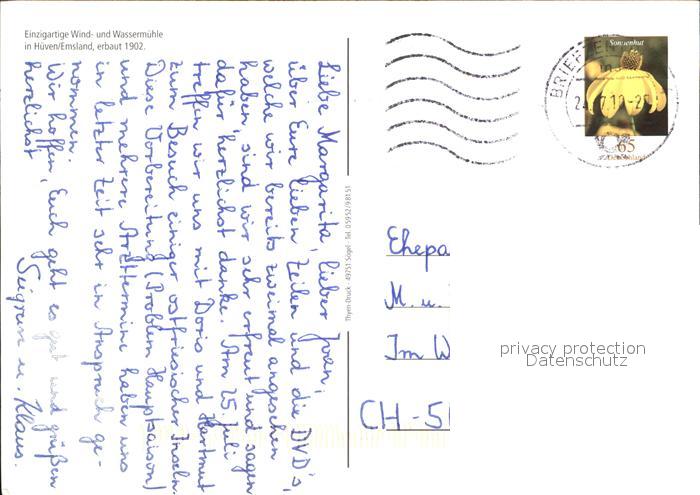 Einzigartige Wind- und Wassermühle
in Hüven/Emsland, erbaut 1902.
Liebe Margarita, lieber Sven,
über Eure lieben Zeilen und die DVD's,
welche wir bereits zweimal angesehen
haben, sind wir sehr erfreut und sagen
dafür herzlichst danke. Am 25. Juli
treffen wir uns mit Doris und Hartmut
zum Besuch einiger ostfriesischer Inseln.
Diese Vorbereitung (Problem Hauptsaison)
und mehrere Arzttermine haben uns
in letzter Zeit sehr in Anspruch ge-
nommen.
Wir hoffen, Euch geht es gut und grüßen
herzlichst
Siegrun u. Klaus.
Thyen-Druck · 49751 Sögel · Tel. 05952/98151
Sonnenhut
65
Deutschland
BRIEFZEN
Ehepa
M. u.
Im W
CH-5
privacy protection
Datenschutz